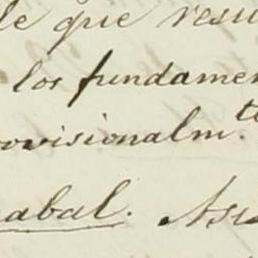 le que resu
los fundamen
ovisionalm.te
abal. Asu